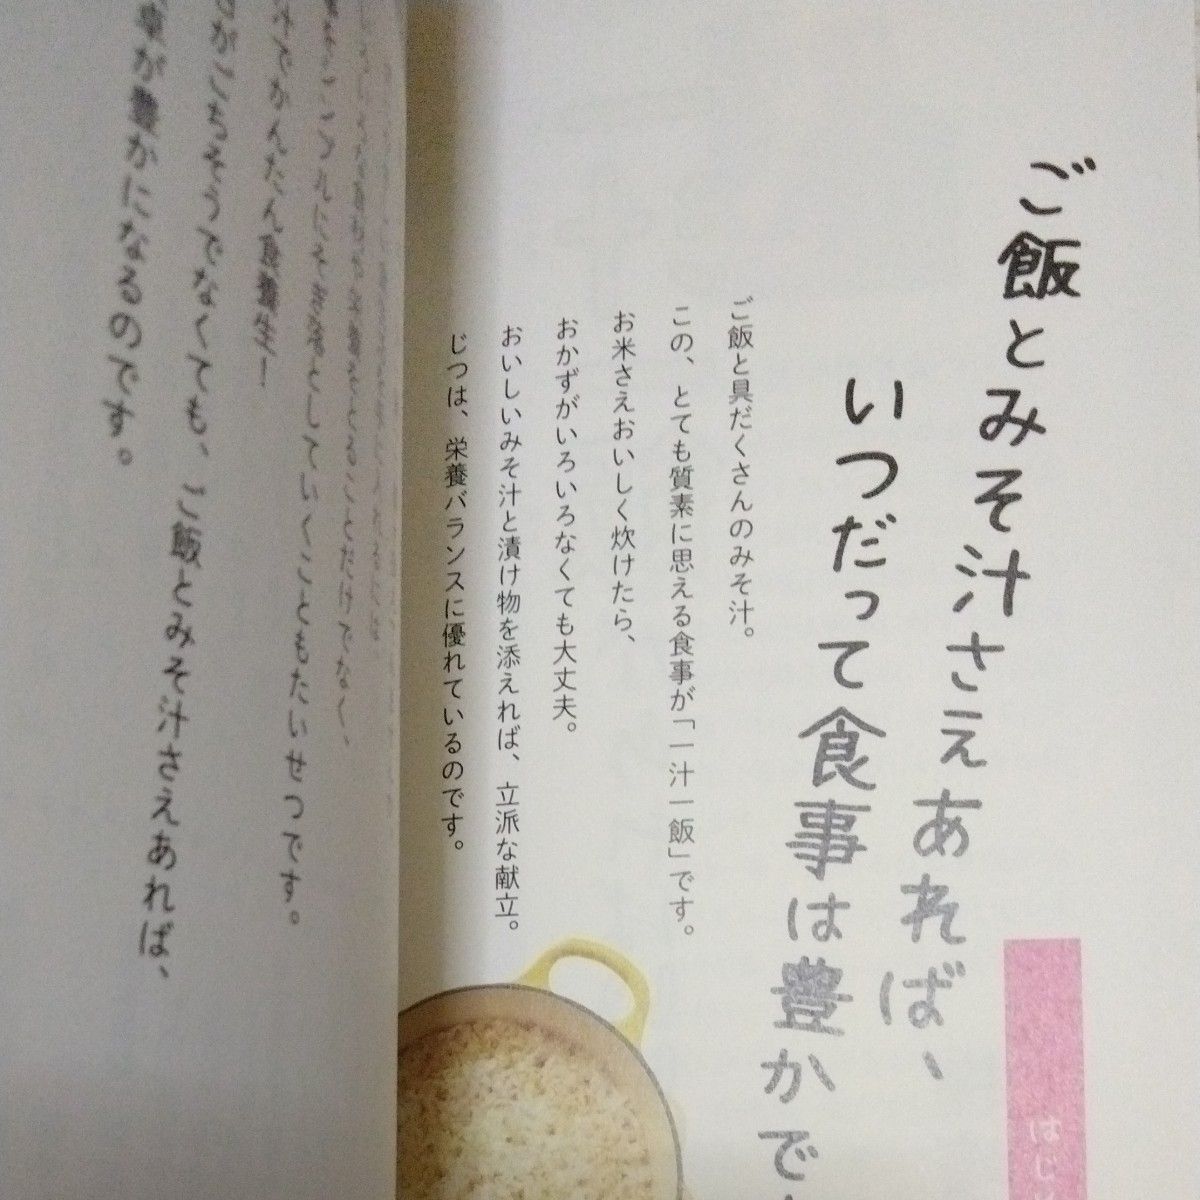 ご飯とみそ汁さえあれば、
いつだって食事は豊かで
はじ
ご飯と具だくさんのみそ汁。
この、とても質素に思える食事が「一汁一飯」です。
お米さえおいしく炊けたら、
おかずがいろいろなくても大丈夫。
おいしいみそ汁と漬け物を添えれば、立派な献立。
じつは、栄養バランスに優れているのです。
ことだけでなく、
していくこともたいせつです。
でかんたん食養生！
がごちそうでなくても、ご飯とみそ汁さえあれば、
が豊かになるのです。